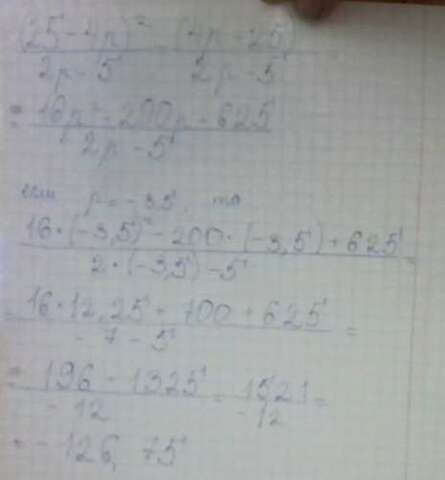 (25 - 4p)² / (2p - 5) - (4p - 25) / (2p - 5)
= (16p² - 200p + 625) / (2p - 5)
если p = -3,5, то
(16·(-3,5)² - 200·(-3,5) + 625) / (2·(-3,5) - 5) =
= (16·12,25 + 700 + 625) / (-7 - 5) =
= (196 + 1325) / (-12) = 1521 / (-12) =
= -126,75